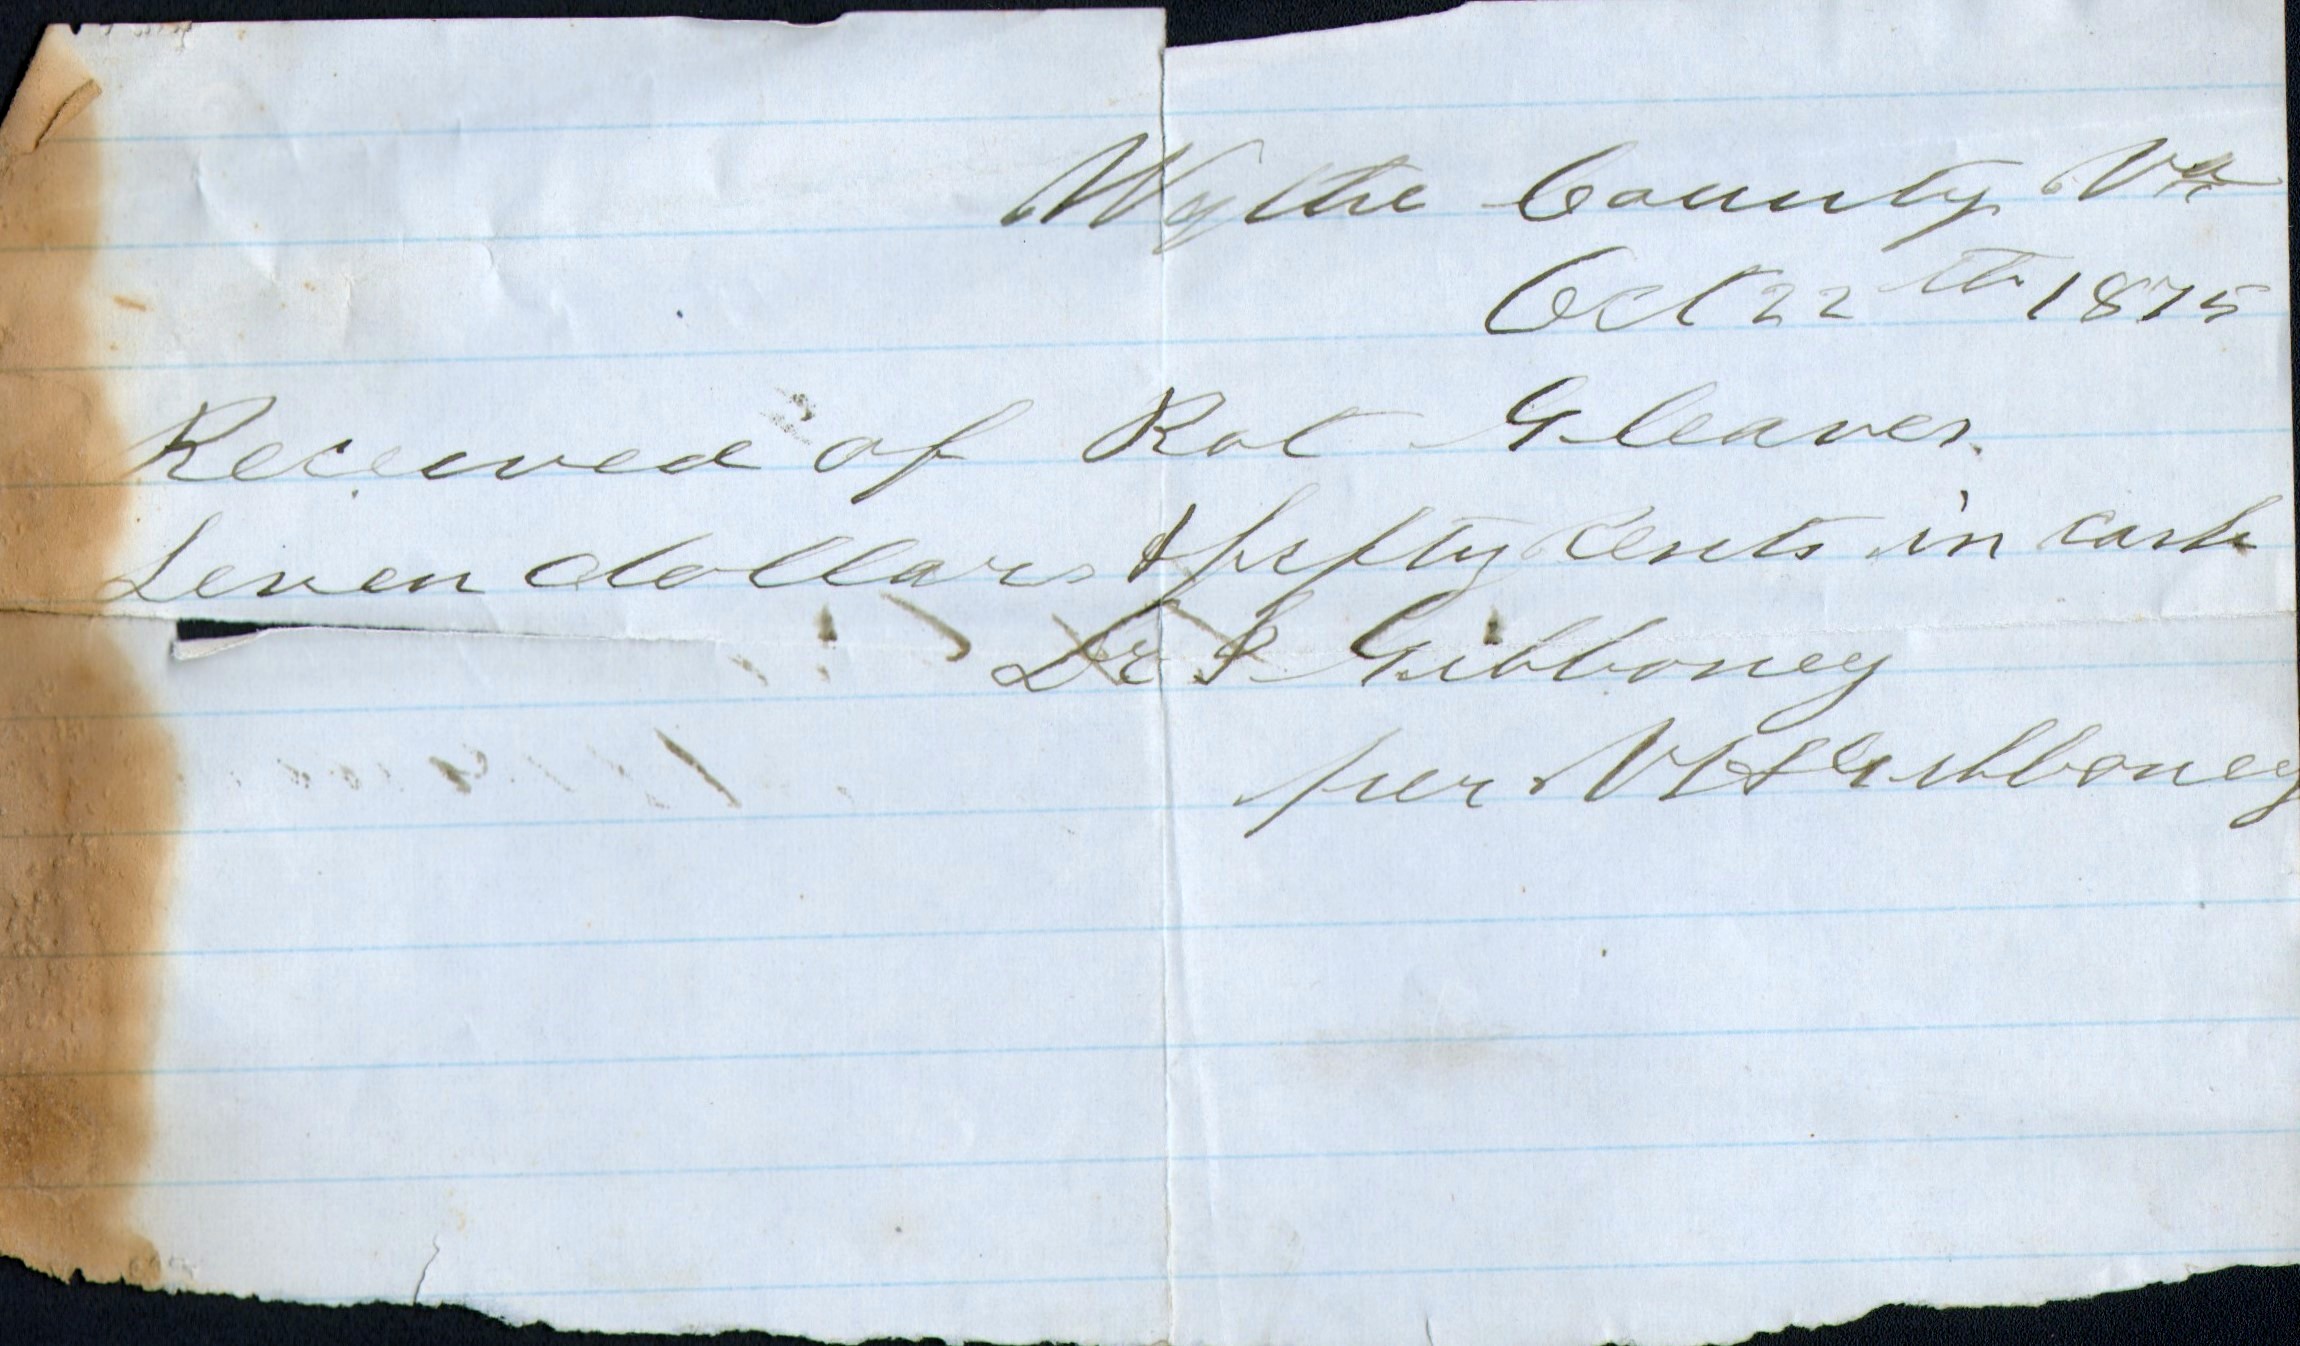 Wythe County Va
Oct 22th 1875
Received of Rot Gleaves
Seven dollars & fifty cents in cash
Gibboney
per Gibboney